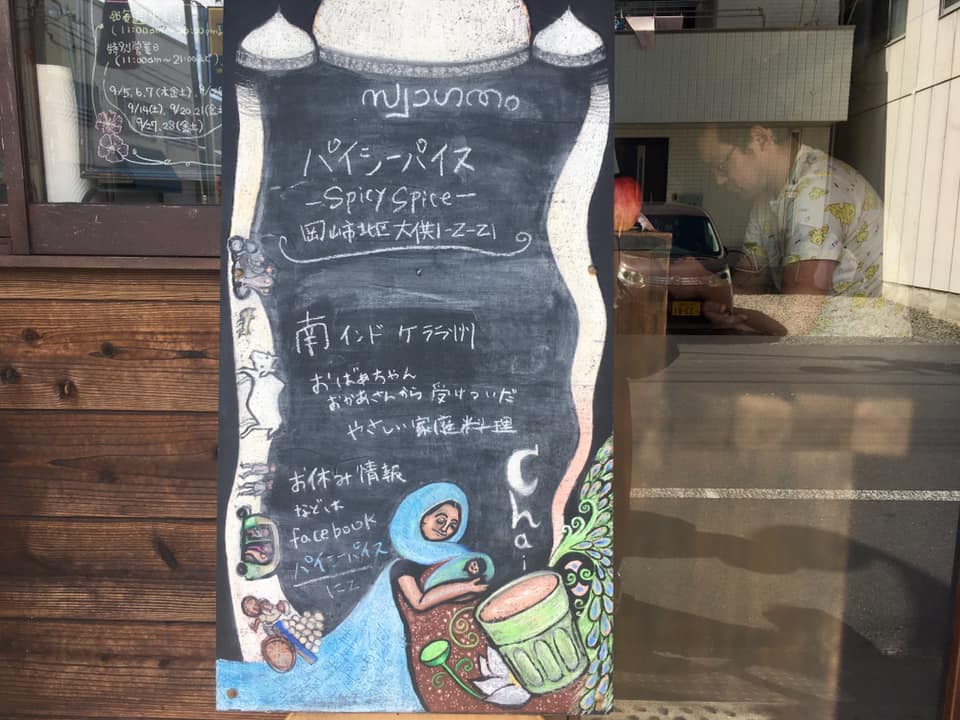 特別営業日
(11:00am〜21:00
9/5,6,7(木金土),
9/14(土), 9/20,21(金土
9/27,28(金土)
സ്വാഗതം
パイシーパイス
-Spicy Spice-
岡山市北区大供1-2-21
南インド ケララ州
おばあちゃん
おかあさんから受けついだ
やさしい家庭料理
Chai
お休み情報
などは
facebook
パイシーパイス
にて